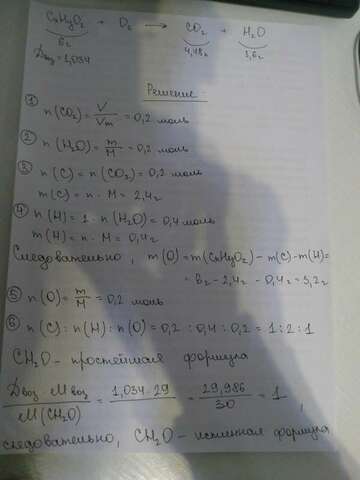 CxHyOz + O2 → CO2 + H2O
6г 4,48л 3,6г
Dвоз=1,034
Решение:
① n(CO2)= V/Vm = 0,2 моль
② n(H2O)= m/M = 0,2 моль
③ n(C) = n(CO2) = 0,2 моль
m(C) = n · M = 2,4г
④ n(H) = 2 · n(H2O) = 0,4 моль
m(H) = n · M = 0,4г
Следовательно, m(O) = m(CxHyOz) - m(C) - m(H) =
= 6г - 2,4г - 0,4г = 3,2г
⑤ n(O) = m/M = 0,2 моль
⑥ n(C) : n(H) : n(O) = 0,2 : 0,4 : 0,2 = 1 : 2 : 1
CH2O - простейшая формула
Dвоз · Mвоз / M(CH2O) = 1,034 · 29 / = 29,986 / 30 = 1,
следовательно, CH2O - истинная формула